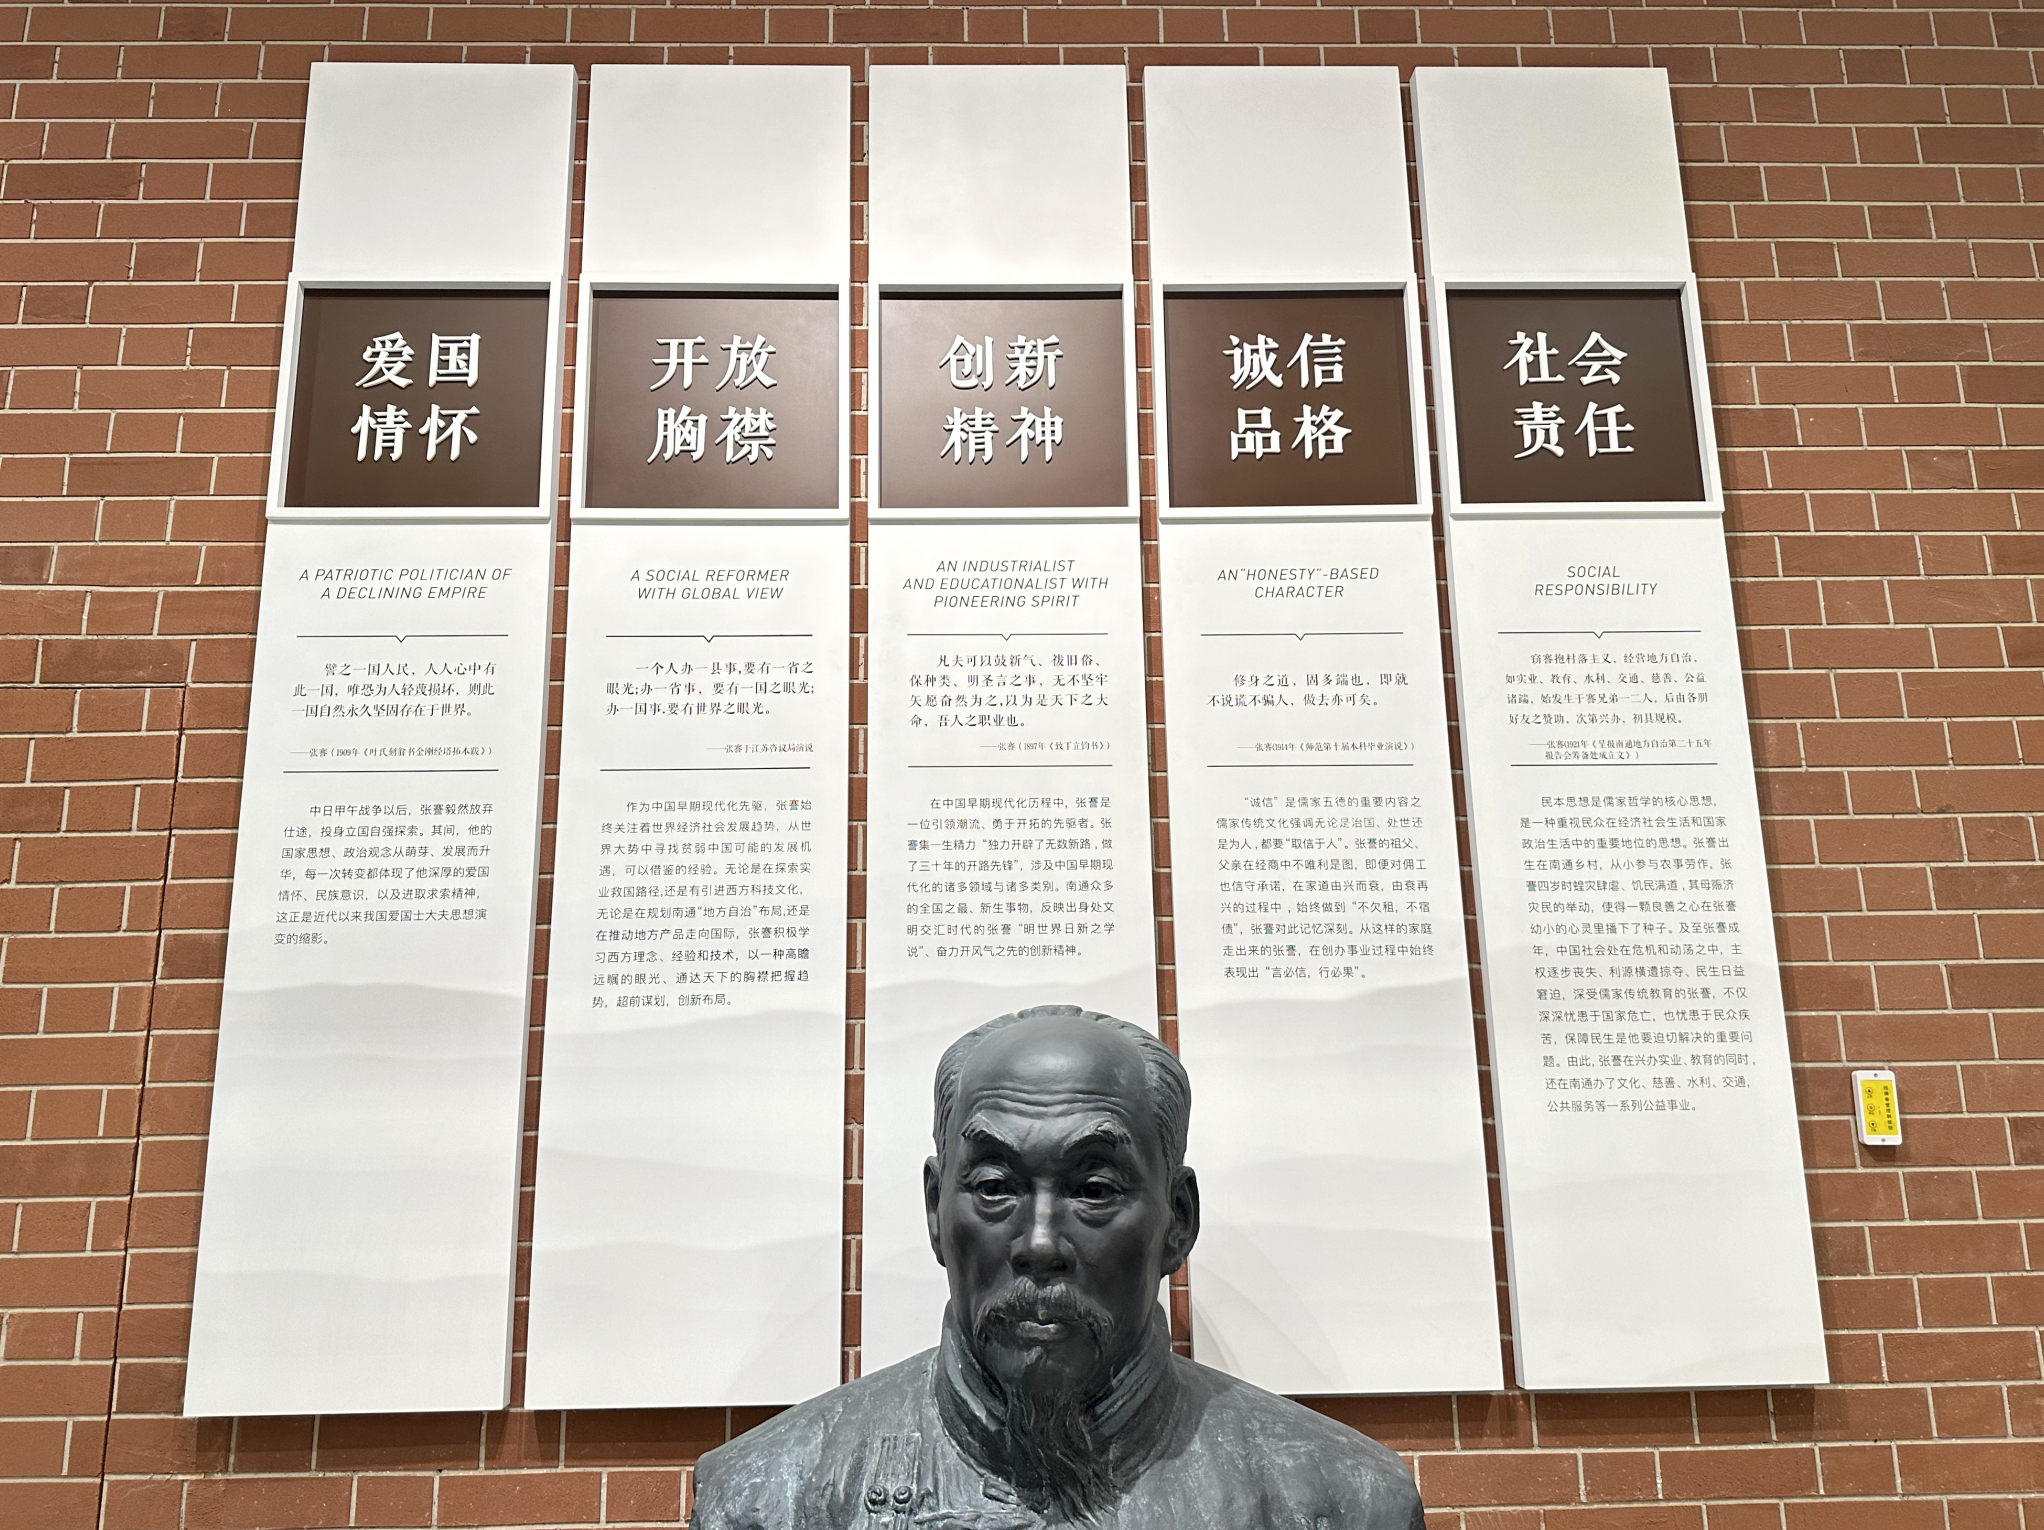 爱国
情怀
A PATRIOTIC POLITICIAN OF
A DECLINING EMPIRE
譬之一国人民，人人心中有
此一国，唯恐为人轻蔑损坏，则此
一国自然永久坚固存在于世界。
——张謇（1909年《叶氏刻翁书金刚经塔拓本跋》）
中日甲午战争以后，张謇毅然放弃
仕途，投身立国自强探索。其间，他的
国家思想、政治观念从萌芽、发展而升
华，每一次转变都体现了他深厚的爱国
情怀、民族意识，以及进取求索精神，
这正是近代以来我国爱国士大夫思想演
变的缩影。
开放
胸襟
A SOCIAL REFORMER
WITH GLOBAL VIEW
一个人办一县事,要有一省之
眼光;办一省事，要有一国之眼光;
办一国事,要有世界之眼光。
——张謇于江苏咨议局演说
作为中国早期现代化先驱，张謇始
终关注着世界经济社会发展趋势，从世
界大势中寻找贫弱中国可能的发展机
遇，可以借鉴的经验。无论是在探索实
业救国路径,还是有引进西方科技文化，
无论是在规划南通“地方自治”布局,还是
在推动地方产品走向国际，张謇积极学
习西方理念、经验和技术，以一种高瞻
远瞩的眼光、通达天下的胸襟把握趋
势，超前谋划，创新布局。
创新
精神
AN INDUSTRIALIST
AND EDUCATIONALIST WITH
PIONEERING SPIRIT
凡夫可以鼓新气、祓旧俗、
保种类、明圣言之事，无不坚牢
矢愿奋然为之,以为是天下之大
命，吾人之职业也。
——张謇（1897年《致丁立钧书》）
在中国早期现代化历程中，张謇是
一位引领潮流、勇于开拓的先驱者。张
謇集一生精力“独力开辟了无数新路，做
了三十年的开路先锋”，涉及中国早期现
代化的诸多领域与诸多类别。南通众多
的全国之最、新生事物，反映出身处文
明交汇时代的张謇“明世界日新之学
说”、奋力开风气之先的创新精神。
诚信
品格
AN“HONESTY”-BASED
CHARACTER
修身之道，固多端也，即就
不说谎不骗人，做去亦可矣。
——张謇(1914年《师范第十届本科毕业演说》)
“诚信”是儒家五德的重要内容之
儒家传统文化强调无论是治国、处世还
是为人,都要“取信于人”。张謇的祖父、
父亲在经商中不唯利是图，即便对佣工
也信守承诺，在家道由兴而衰，由衰再
兴的过程中，始终做到“不欠租，不宿
债”，张謇对此记忆深刻。从这样的家庭
走出来的张謇，在创办事业过程中始终
表现出“言必信，行必果”。
社会
责任
SOCIAL
RESPONSIBILITY
窃謇抱村落主义，经营地方自治，
如实业、教育、水利、交通、慈善、公益
诸端，始发生于謇兄弟一二人，后由各朋
好友之赞助，次第兴办，初具规模。
——张謇(1921年《呈报南通地方自治第二十五年
报告会筹备处成立文》)
民本思想是儒家哲学的核心思想，
是一种重视民众在经济社会生活和国家
政治生活中的重要地位的思想。张謇出
生在南通乡村，从小参与农事劳作，张
謇四岁时蝗灾肆虐、饥民满道，其母赈济
灾民的举动，使得一颗良善之心在张謇
幼小的心灵里播下了种子。及至张謇成
年，中国社会处在危机和动荡之中，主
权逐步丧失、利源横遭掠夺、民生日益
窘迫，深受儒家传统教育的张謇，不仅
深深忧患于国家危亡，也忧患于民众疾
苦，保障民生是他要迫切解决的重要问
题。由此，张謇在兴办实业、教育的同时，
还在南通办了文化、慈善、水利、交通，
公共服务等一系列公益事业。